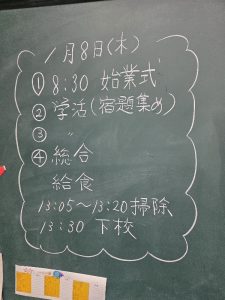 1月8日(木)
① 8:30 始業式
② 学活(宿題集め)
③ 〃
④ 総合
給食
13:05～13:20掃除
13:30 下校